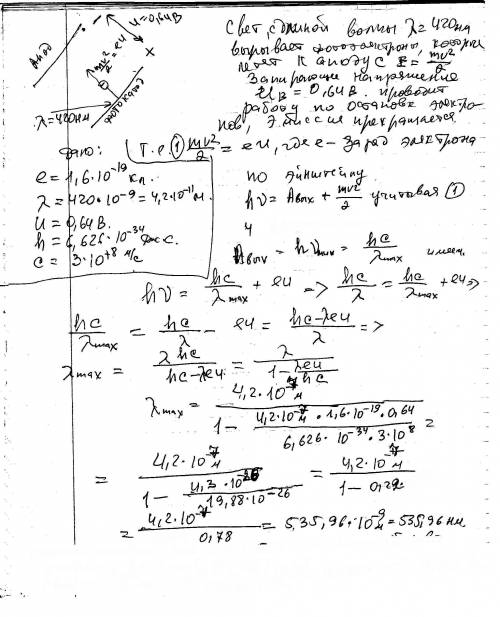 Анод
U=0,64В
mv²/2 = eU
X
фотокатод
λ=420нм
Свет, с длиной волны λ=420нм
вырывает фотоэлектроны, которые
летят к аноду с E = mv²/2
Запирающее напряжение
U_B = 0,64В. проводит
работу по остановке электро-
нов, эмиссия прекращается.
Дано:
т.е. ① mv²/2 = eU, где e - заряд электрона
e = 1,6·10⁻¹⁹ Кл.
λ = 420·10⁻⁹ = 4,2·10⁻¹¹ м.
U = 0,64 В.
h = 6,626·10⁻³⁴ Дж·с.
c = 3·10⁺⁸ м/с
по Эйнштейну
hν = Aвых + mv²/2 учитывая ①
и
Aвых = hνmin = hc/λmax имеем
hν = hc/λmax + eU => hc/λ = hc/λmax + eU =>
hc/λmax = hc/λ - eU = (hc-λeU)/λ =>
λmax = λhc/(hc-λeU) = λ/(1-λeU/hc)
λmax = 4,2·10⁻⁷м/(1 - (4,2·10⁻⁷·1,6·10⁻¹⁹·0,64)/(6,626·10⁻³⁴·3·10⁸)) =
= 4,2·10⁻⁷м/(1 - (4,3·10⁻²⁶)/(19,88·10⁻²⁶)) = 4,2·10⁻⁷м/(1-0,22)
= 4,2·10⁻⁷/0,78 = 535,96·10⁻⁹м = 535,96 нм